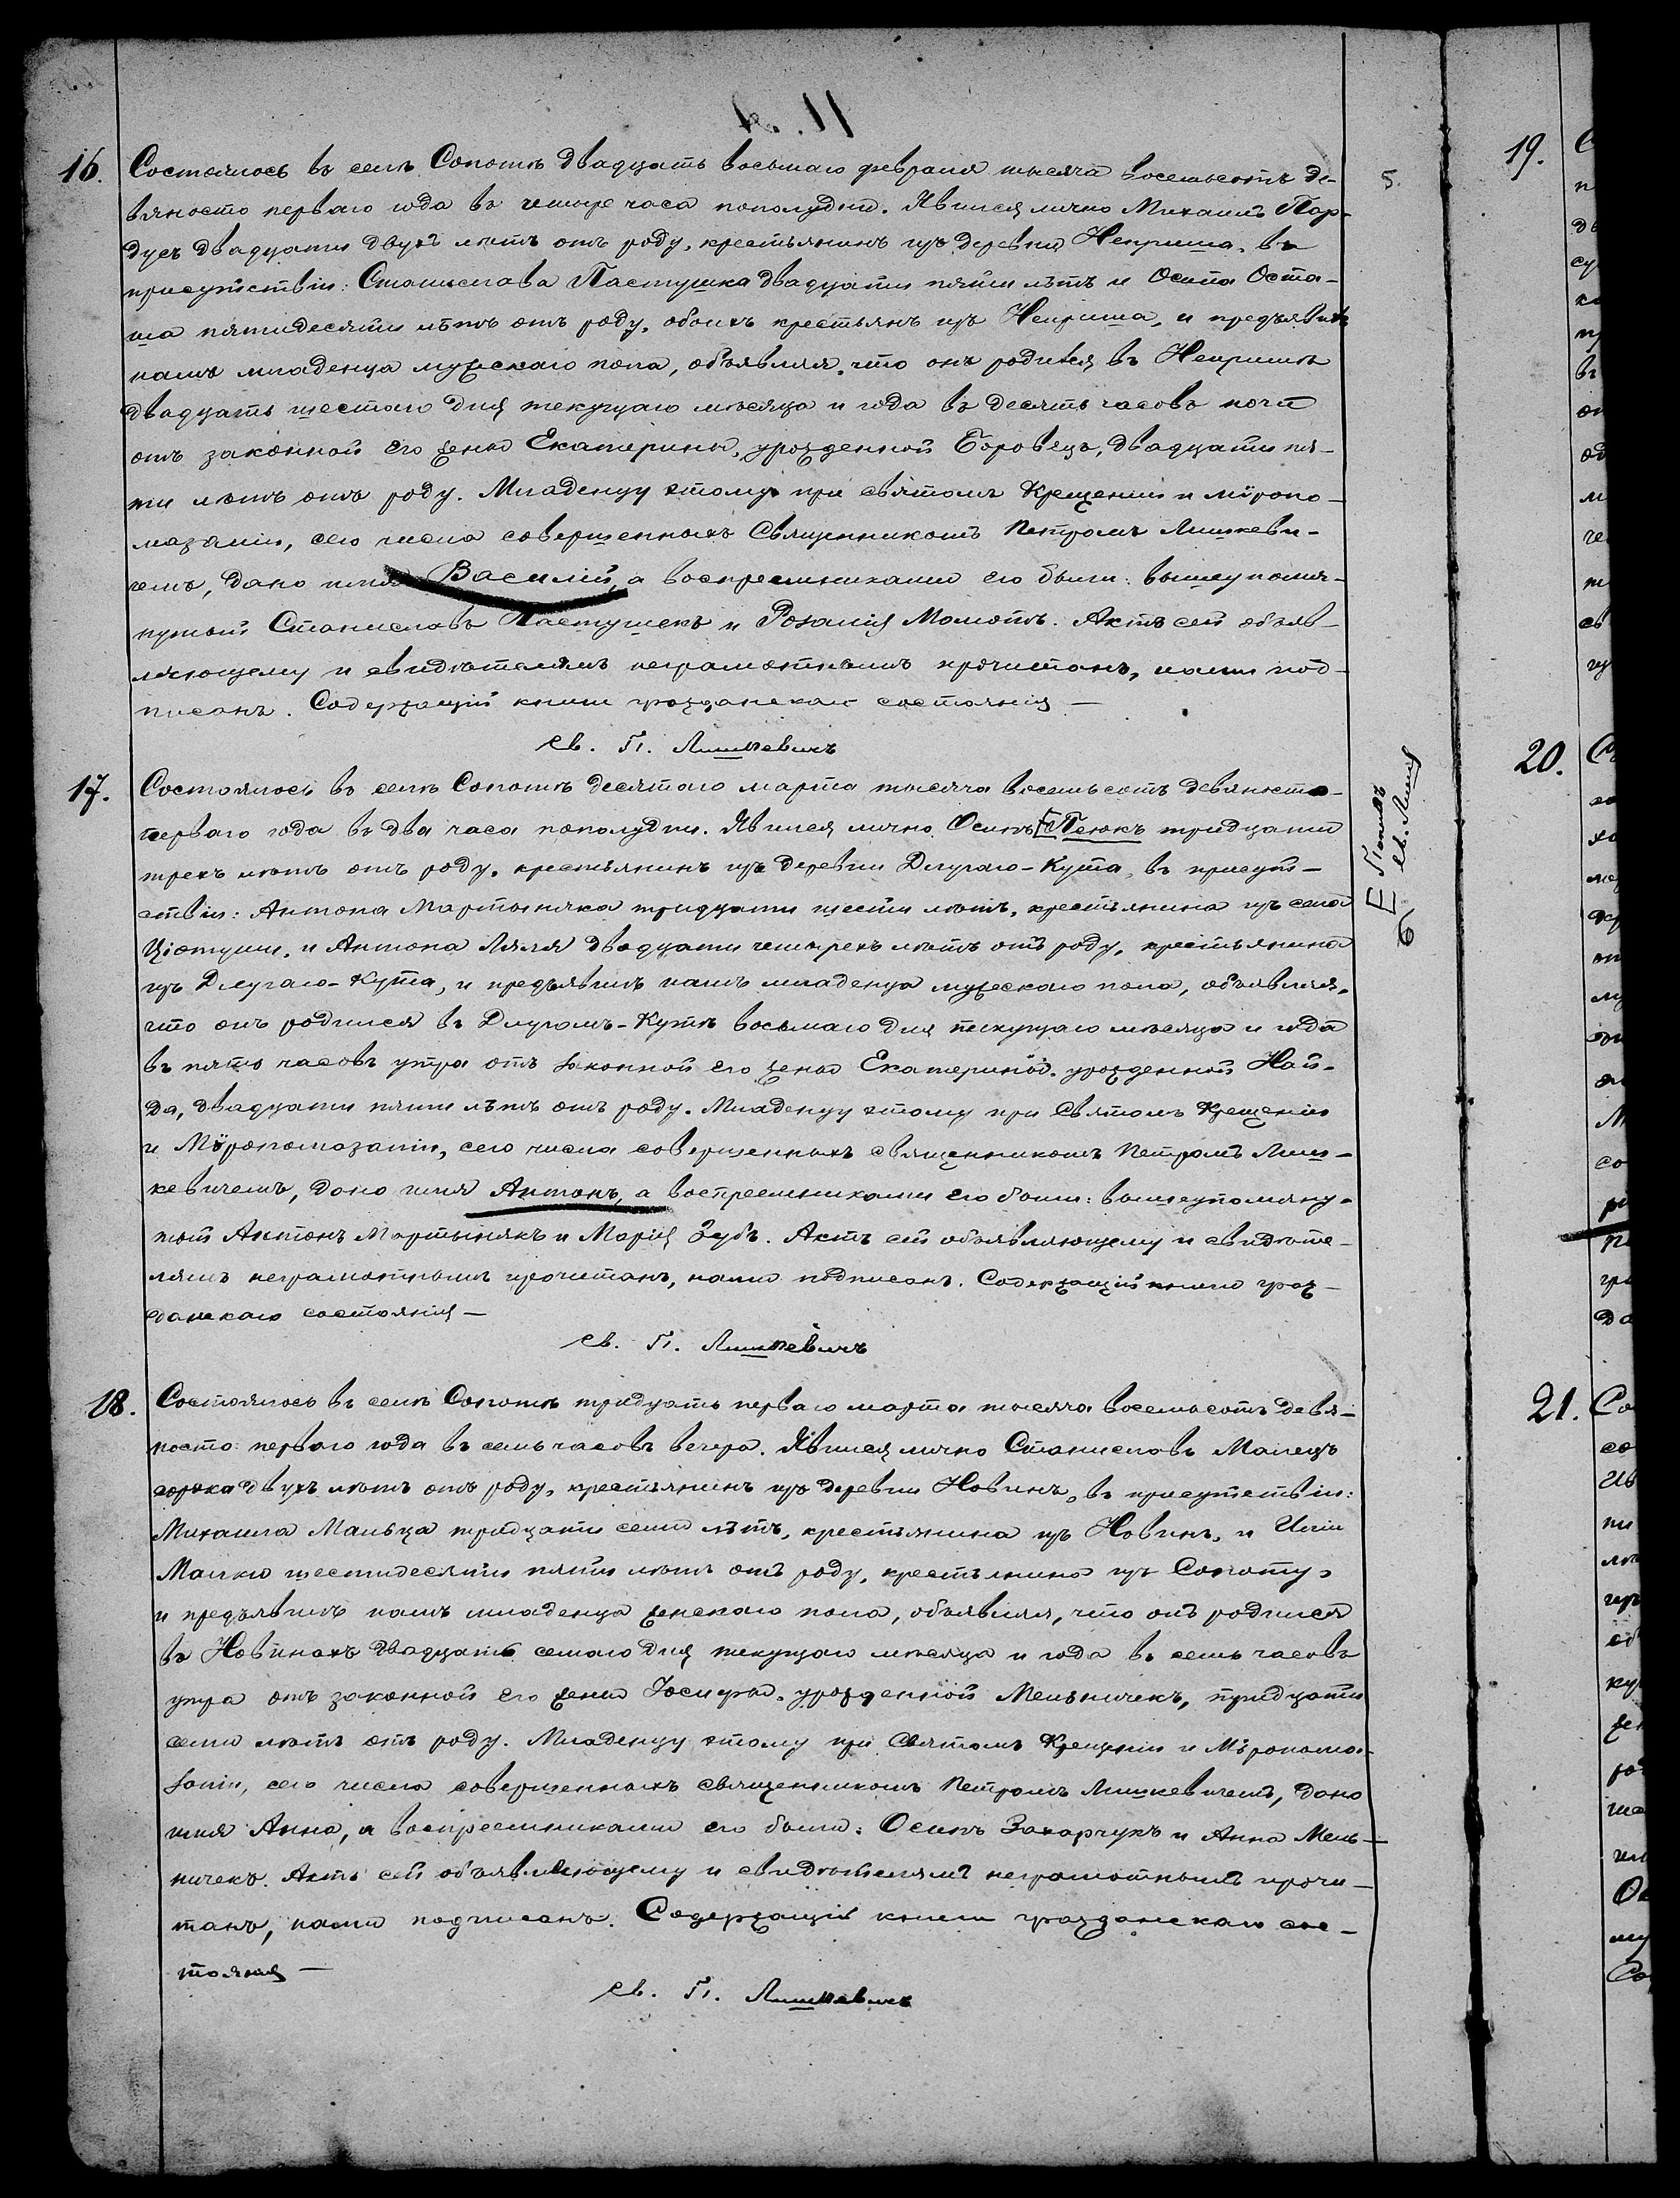 16. Состоялось въ селѣ Сопотѣ двадцать восьмаго февраля тысяча восемьсотъ де-
вяносто перваго года въ четыре часа пополудни. Явился лично Михаилъ Пар-
дусъ двадцати двухъ лѣтъ отъ роду, крестьянинъ изъ деревни Неприша, въ
присутствіи: Станислава Пастушка двадцати пяти лѣтъ и Осипа Оста-
ша пятидесяти лѣтъ отъ роду, обоихъ крестьянъ изъ Неприша, и предъявилъ
намъ младенца мужескаго пола, объявляя, что онъ родился въ Непришѣ
двадцать шестаго дня текущаго мѣсяца и года въ десять часовъ ночи
отъ законной его жены Екатерины, урожденной Боровецъ, двадцати пя-
ти лѣтъ отъ роду. Младенцу этому при святомъ Крещеніи и мѵропо-
мазаніи, сего числа совершенныхъ Священникомъ Петромъ Лишкеви-
чемъ, дано имя Василій, а воспреемниками его были: вышеупомя-
нутый Станиславъ Пастушекъ и Розалія Момотъ. Актъ сей объяв-
ляющему и свидѣтелямъ неграмотнымъ прочитанъ, нами под-
писанъ. Содержащій книги гражданскаго состоянія —
Св. П. Лишкевичъ
5.
17. Состоялось въ селѣ Сопотѣ десятаго марта тысяча восемьсотъ девяносто-
перваго года въ два часа пополудни. Явился лично Осипъ Пеюкъ тридцати
трехъ лѣтъ отъ роду, крестьянинъ изъ деревни Длугаго-Кута, въ присут-
ствіи: Антона Мартыняка тридцати шести лѣтъ, крестьянина изъ села
Ціотуши, и Антона Ляля двадцати четырехъ лѣтъ отъ роду, крестьянина
изъ Длугаго-Кута, и предъявилъ намъ младенца мужескаго пола, объявляя,
что онъ родился въ Длугомъ-Кутѣ восьмаго дня текущаго мѣсяца и года
въ пять часовъ утра отъ законной его жены Екатерины, урожденной Най-
да, двадцати пяти лѣтъ отъ роду. Младенцу этому при Святомъ Крещеніи
и Мѵропомазаніи, сего числа совершенныхъ священникомъ Петромъ Лиш-
кевичемъ, дано имя Антонъ, а воспреемниками его были: вышеупомяну-
тый Антонъ Мартынякъ и Марія Зубъ. Актъ сей объявляющему и свидѣте-
лямъ неграмотнымъ прочитанъ, нами подписанъ. Содержащій книги граж-
данскаго состоянія —
Св. П. Лишкевичъ
6
18. Состоялось въ селѣ Сопотѣ тридцать перваго марта тысяча восемьсотъ девя-
носто перваго года въ семь часовъ вечера. Явился лично Станиславъ Малецъ
сорока двухъ лѣтъ отъ роду, крестьянинъ изъ деревни Новинъ, въ присутствіи:
Михаила Мальца тридцати семи лѣтъ, крестьянина изъ Новинъ, и Иліи
Малки шестидесяти пяти лѣтъ отъ роду, крестьянина изъ Сопоту,
и предъявилъ намъ младенца женскаго пола, объявляя, что онъ родился
въ Новинахъ двадцать седмаго дня текущаго мѣсяца и года въ семь часовъ
утра отъ законной его жены Іосифы, урожденной Мельничекъ, тридцати
семи лѣтъ отъ роду. Младенцу этому при Святомъ Крещеніи и Мѵропома-
заніи, сего числа совершенныхъ священникомъ Петромъ Лишкевичемъ, дано
имя Анна, а воспреемниками его были: Осипъ Захарчукъ и Анна Мель-
ничекъ. Актъ сей объявляющему и свидѣтелямъ неграмотнымъ прочи-
танъ, нами подписанъ. Содержащій книги гражданскаго сос-
тоянія —
Св. П. Лишкевичъ
19.
20.
21. Со